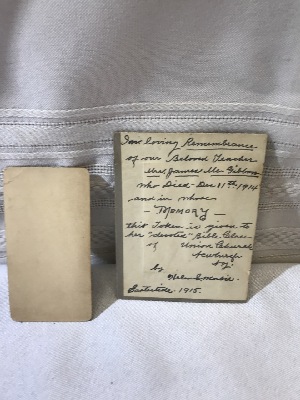 In loving Remembrance
of our Beloved Teacher
Mrs. James Mc Gibbon
who Died - Dec 11th, 1914
and in whose
- MEMORY -
this Token is given to
her "devoted" Bible Class
of Union Church
Newburgh
N.Y.
by
Helen
Eastertide - 1915.